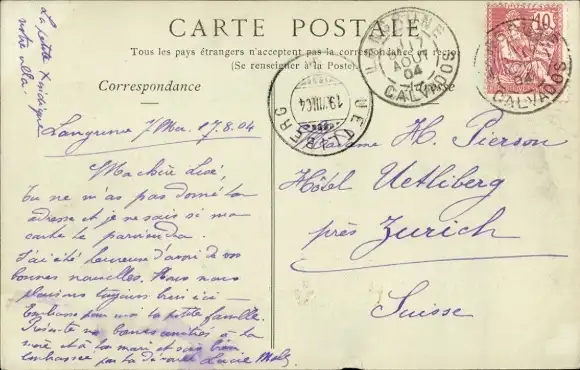 CARTE POSTALE
Tous les pays étrangers n'acceptent pas la correspondance au recto
(Se renseigner à la Poste)
Correspondance
La petite
notre villa.
Langrune s/Mer 17.8.04
Ma chère Lisé,
Tu ne m'as pas donné ta
adresse et je ne sais si ma
carte te parviendra.
J'ai été heureuse d'avoir de vos
bonnes nouvelles. Nous nous
plaisons toujours bien ici —
Embrasse pour moi la petite famille.
bonnes amitiés à ta
mère et à ton mari et sois bien
embrassée par ta dévouée Lucie
LANGRUNE
AOUT
04
CALVADOS
UETLIBERG
19.VIII.04
10
CALVADOS
Madame H. Pierson
Hôtel Uetliberg
près Zurich
Suisse